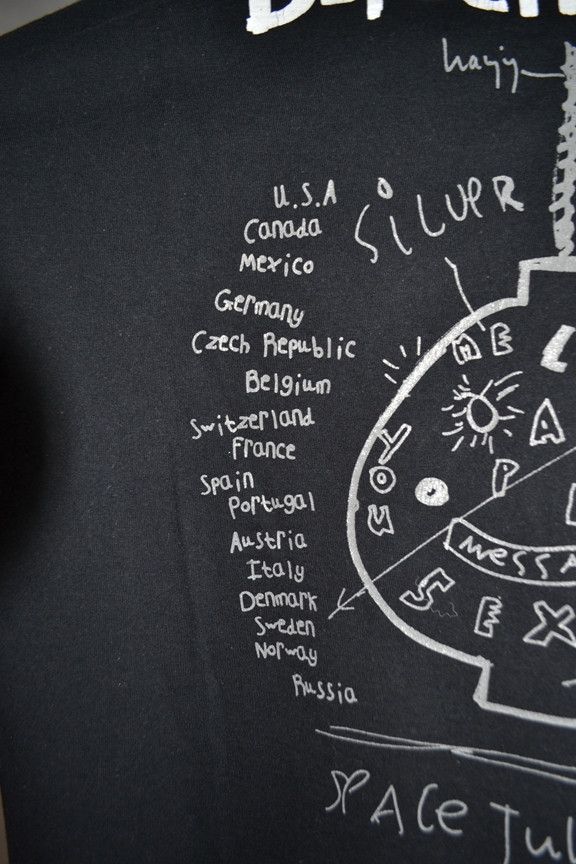 hayij
U.S.A
SiLVER
Canada
Mexico
Germany
Czech Republic
Belgium
Switzerland
France
Spain
Portugal
Austria
Italy
Denmark
Sweden
Norway
Russia
ME
A
YOU
P
MESSA
SEX
SPACE JUL